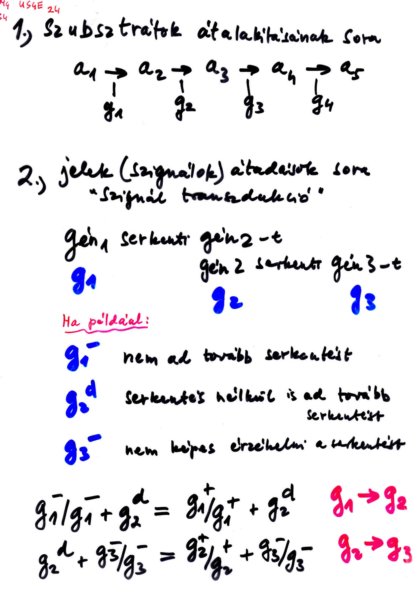 Hg USGE 24
1., Szubsztrátok átalakításainak sora
a1 → a2 → a3 → a4 → a5
g1 g2 g3 g4
2., jelek (szignálok) átadások sora
"szignál transzdukció"
gén1 serkenti gén2-t
gén2 serkenti gén3-t
g1 g2 g3
Ha például:
g1⁻ nem ad tovább serkentést
g2ᵈ serkentés nélkül is ad tovább
serkentést
g3⁻ nem képes érzékelni a serkentést
g1⁻/g1⁻ + g2ᵈ = g1⁺/g1⁺ + g2ᵈ g1 → g2
g2ᵈ + g3⁻/g3⁻ = g2⁺/g2⁺ + g3⁻/g3⁻ g2 → g3